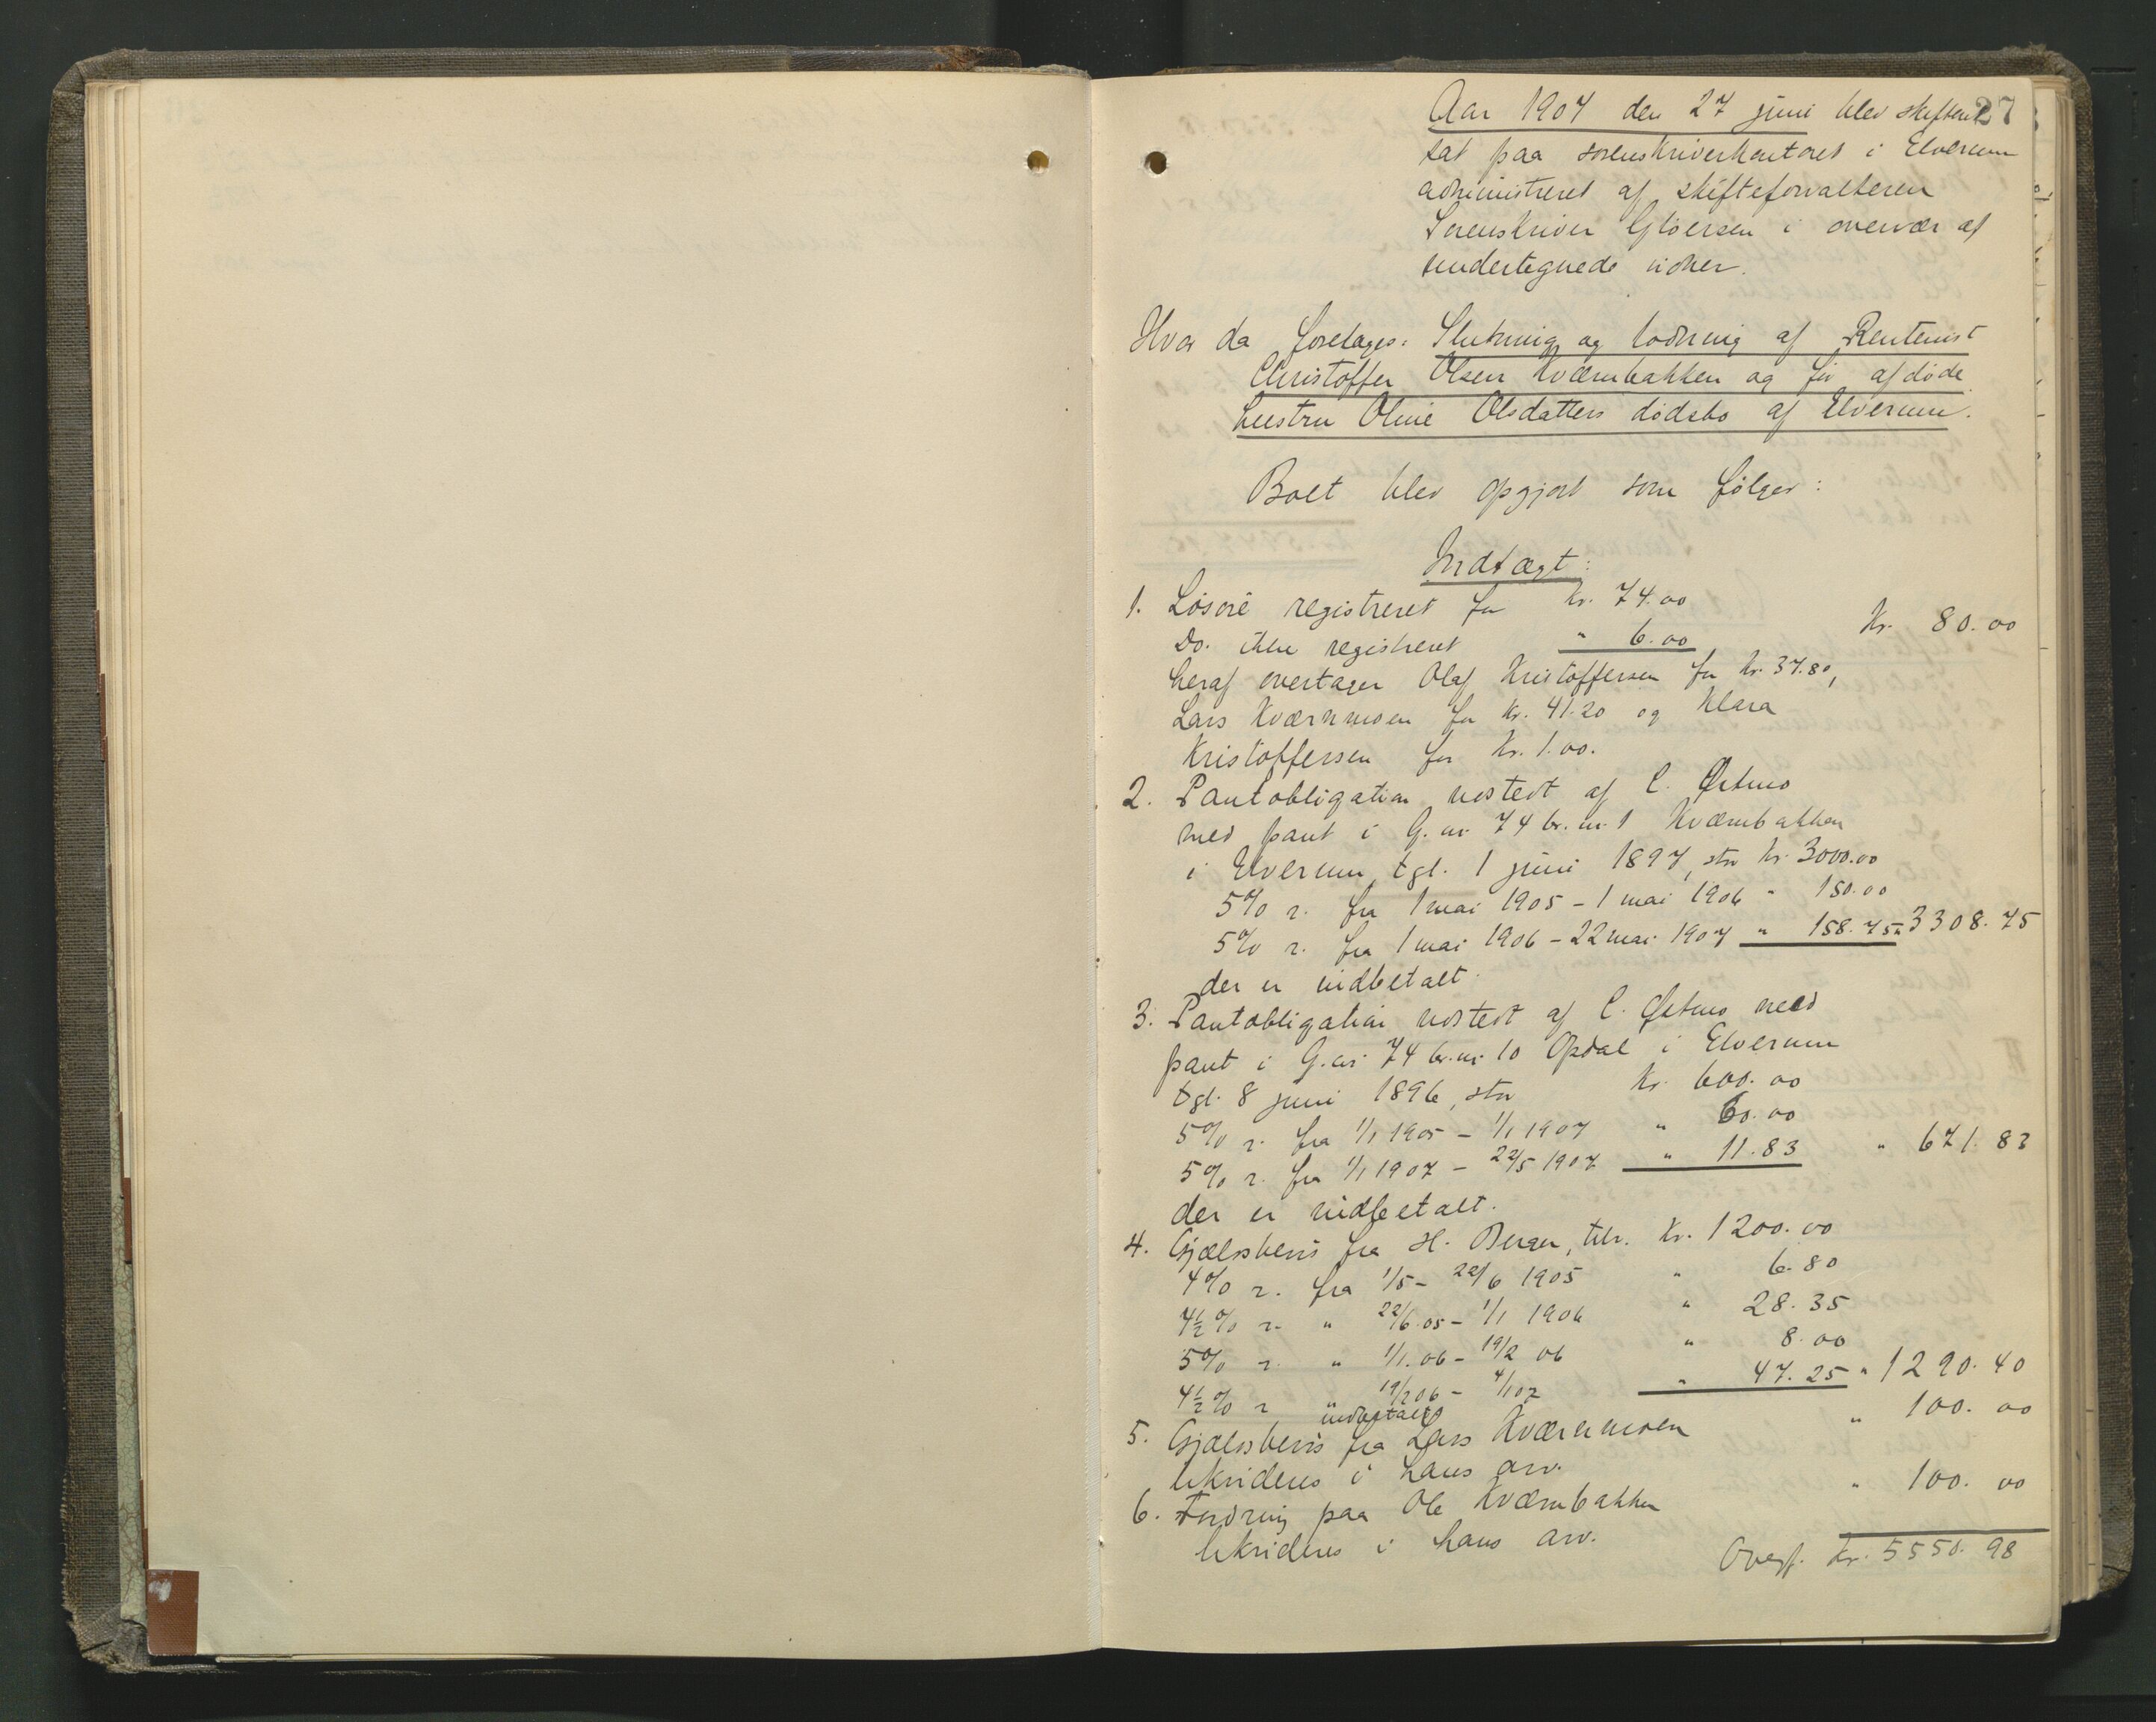 27
Aar 1907 den 27 juni blev skifteret
sat paa sorenskriverkontoret i Elverum
administreret af skifteforvalteren
Sorenskriver Gløersen i overvær af
undertegnede vidner.
Hvor da foretages: Slutning og lodning af Rentenist
Christoffer Olsen Kværnbakken og før afdøde
hustru Oline Olsdatters dødsbo af Elverum.
Boet blev opgjort som følger:
Indtægt:
1. Løsøre registreret for Kr. 74.00
Do. ikke registreret " 6.00 Kr. 80.00
heraf overtager Olaf Kristoffersen for Kr. 37.80,
Lars Kværnmoen for Kr. 41.20 og Klara
Kristoffersen for Kr. 1.00.
2. Pantobligation udstedt af C. Østmo
med pant i G.nr. 74 br.nr. 1 Kværnbakken
i Elverum, tgl. 1 juni 1897, stor Kr. 3000.00
5% r. fra 1 mai 1905 - 1 mai 1906 " 150.00
5% r. fra 1 mai 1906 - 22 mai 1907 " 158.75 " 3308.75
der er indbetalt.
3. Pantobligation udstedt af C. Østmo med
pant i G.nr. 74 br.nr. 10 Opdal i Elverum
tgl. 8 juni 1896, stor Kr. 600.00
5% r. fra 1/1 1905 - 1/1 1907 " 60.00
5% r. fra 1/1 1907 - 22/5 1907 " 11.83 " 671.83
der er indbetalt.
4. Gjældsbevis fra H. Berger, Kr. 1200.00
4% r. fra 1/5 - 22/6 1905 " 6.80
4½% r. " 22/6.05 - 1/1 1906 " 28.35
5% r. " 1/1.06 - 19/2 06 " 8.00
4½% r " 19/2 06 - 4/1 07 " 47.25 " 1290.40
indbetalt
5. Gjældsbevis fra Lars Kværnmoen " 100.00
likvideres i hans arv.
6. Fordring paa Ole Kværnbakken " 100.00
likvideres i hans arv.
Overf. Kr. 5550.98